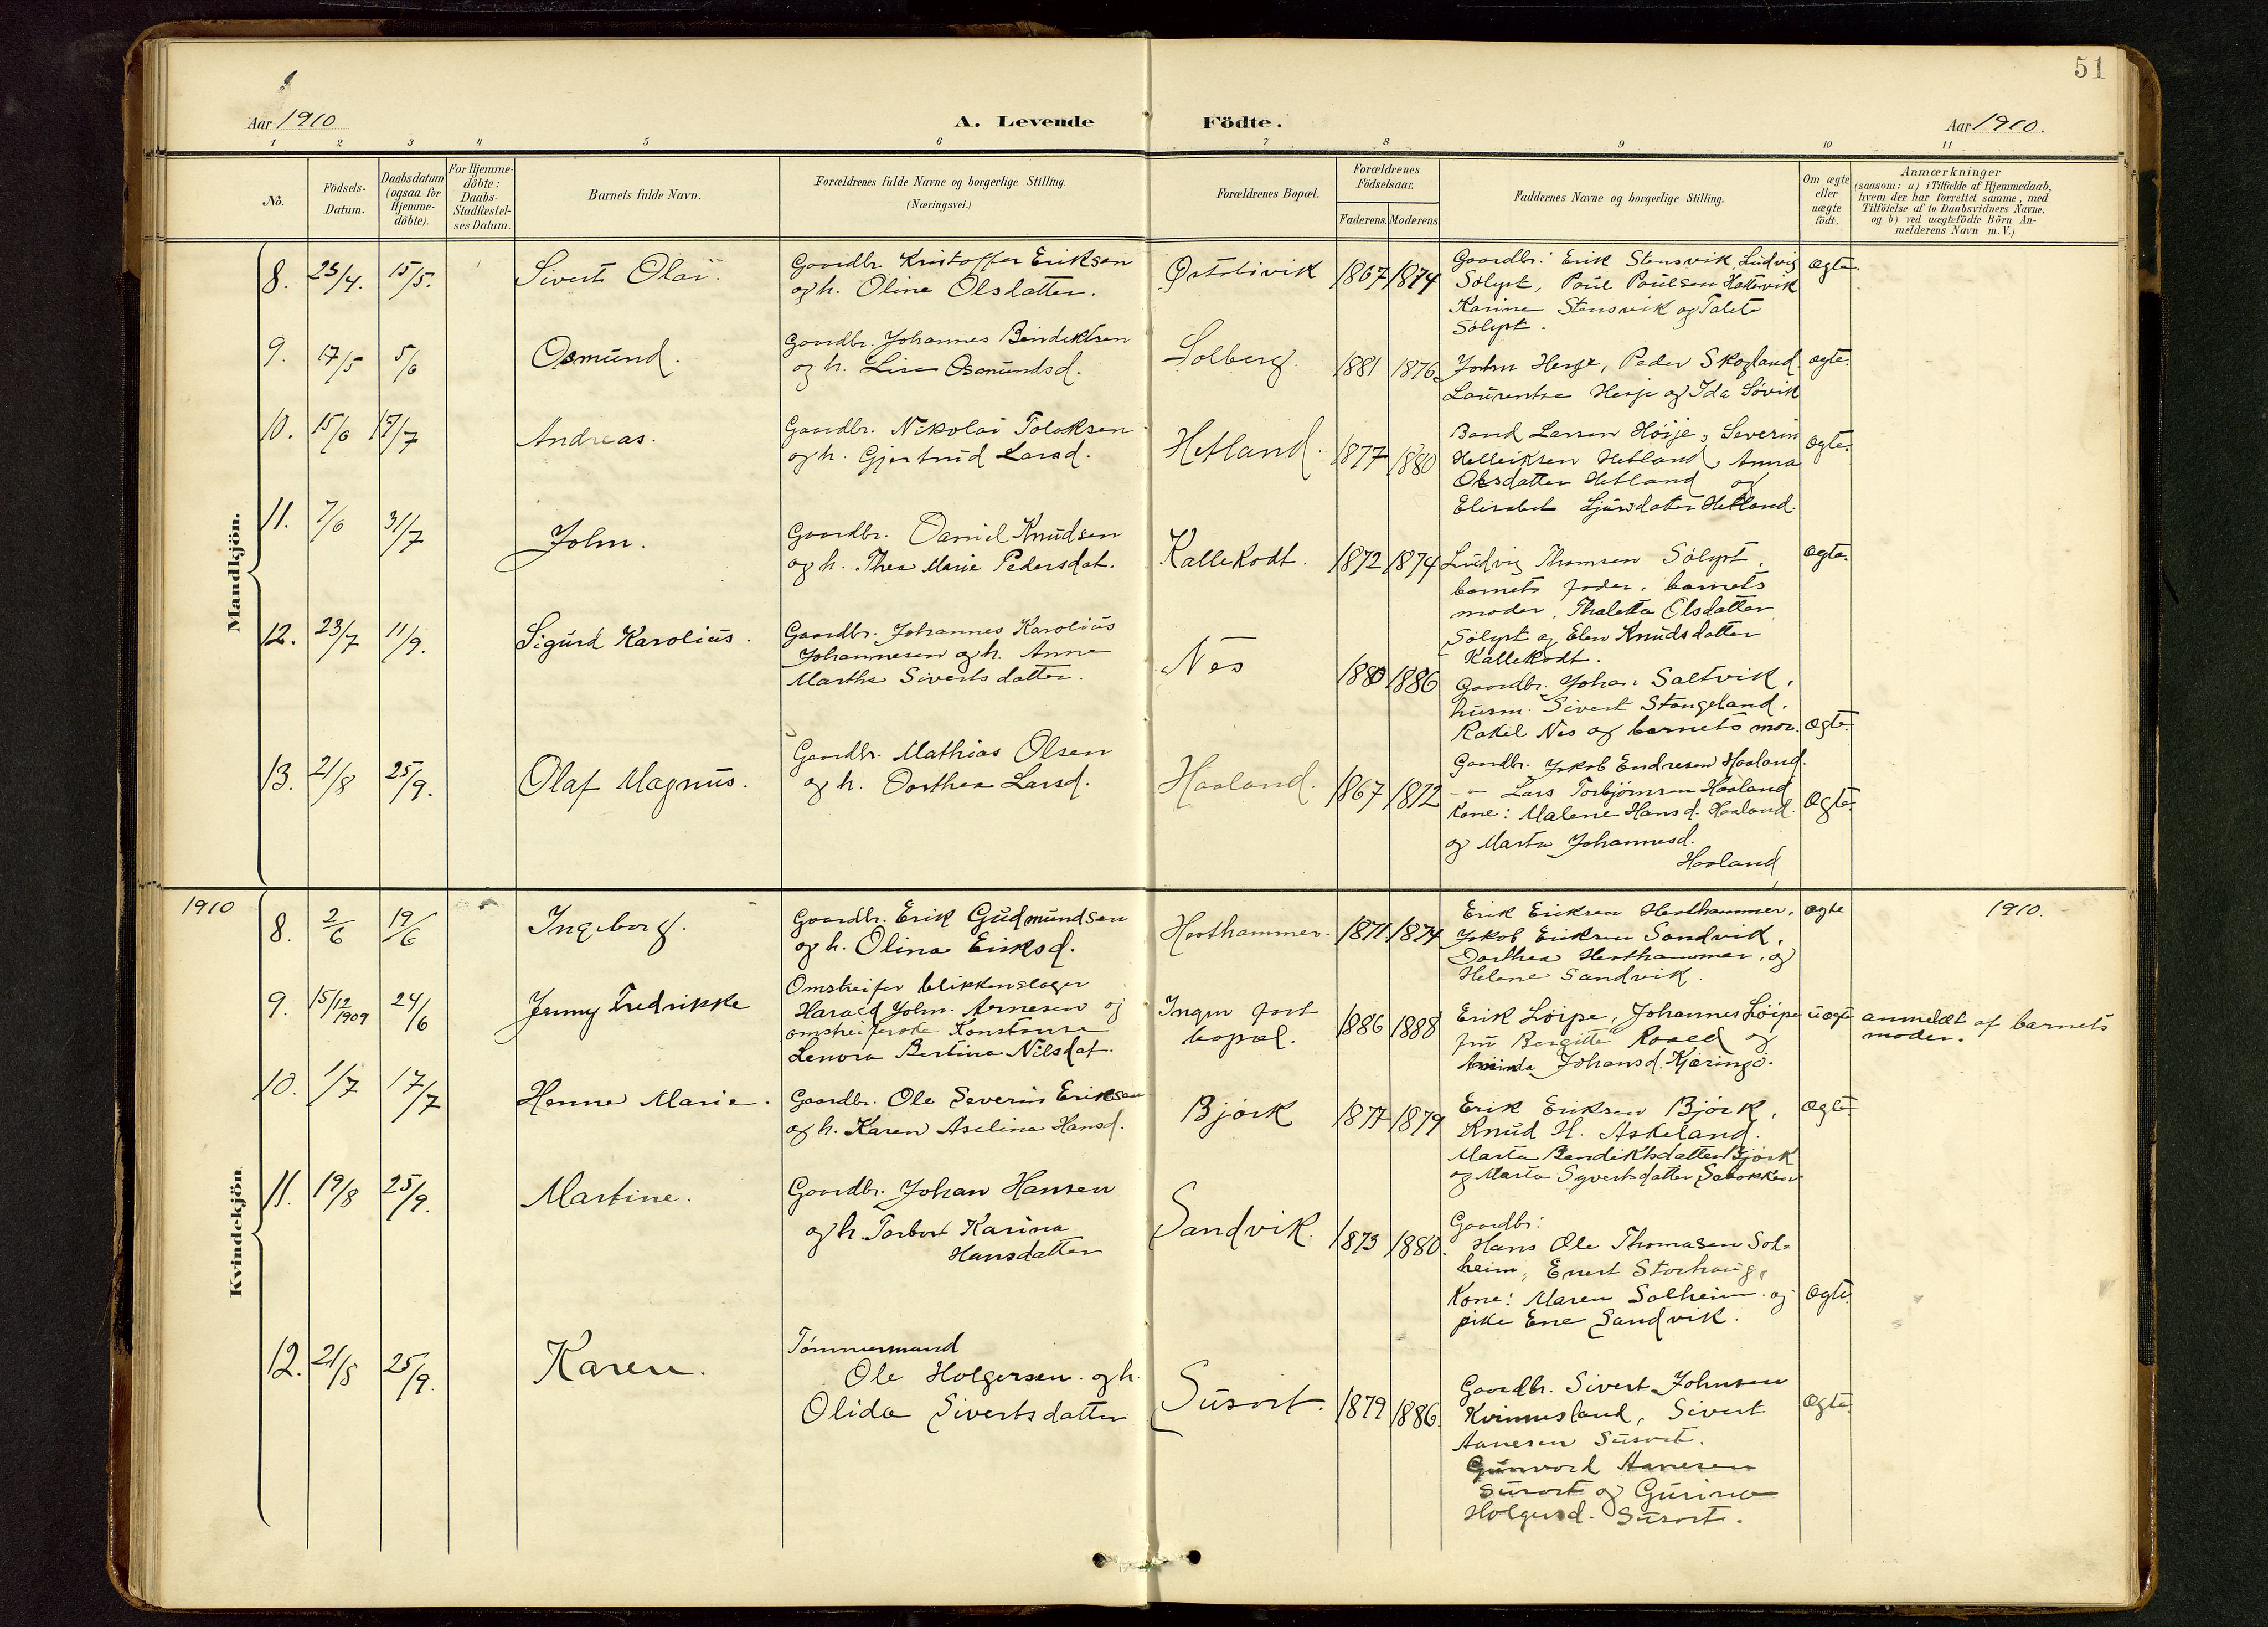 51
Aar 1910
A. Levende Födte.
Aar 1910.
1 2 3 4 5 6 7 8 9 10 11
No.
Födsels-Datum.
Daabsdatum (ogsaa for Hjemme-döbte).
For Hjemme-döbte: Daabs-Stadfæstel-ses Datum.
Barnets fulde Navn.
Forældrenes fulde Navne og borgerlige Stilling. (Næringsvei.)
Forældrenes Bopæl.
Forældrenes Födselsaar.
Faderens. Moderens.
Faddernes Navne og borgerlige Stilling.
Om ægte eller uægte födt.
Anmærkninger
(saasom: a) i Tilfælde af Hjemmedaab, hvem der har forrettet samme, med Tilföielse af to Daabsvidners Navne, og b) ved uægtefödte Börn An-melderens Navn m. V.)
Mandkjön.
8. 23/4. 15/5. Sivert Olai.
Gaardbr. Kristoffer Eriksen
og h. Oline Olsdatter.
Østebivik 1867 1874
Gaardbr: Erik Stensvik, Ludvig
Sølyst, Paul Paulsen Hattevik
Karine Stensvik og Talete
Sølyst.
ægte.
9. 17/5 5/6 Osmund.
Gaardbr. Johannes Bendiktsen
og h. Lise Osmundsd.
Solberg. 1881 1876
John Hesje, Peder Skogland.
Laurentse Hesje og Ida Søvik
ægte.
10. 15/6 17/7 Andreas.
Gaardbr. Nikolai Tolaksen
og h. Gjertrud Larsd.
Hetland. 1877 1880
Baard Larsen Høije, Severin
Helleiksen Hetland, Anna
Olsdatter Hetland og
Elisabet Sjursdatter Hetland
ægte.
11. 7/6 31/7 John.
Gaardbr. Daniel Knudsen
og h. Thea Marie Pedersdat.
Kallekodt. 1872 1874
Ludvig Thomsen Sølyst,
barnets fader, barnets
moder, Thaletta Olsdatter
Sølyst og Elen Knudsdatter
Kallekodt.
ægte.
12. 23/7 11/9. Sigurd Karolius.
Gaardbr. Johannes Karolius
Johannesen og h. Anne
Marthe Sivertsdatter.
Nes 1880 1886
Gaardbr. Johan Saltvik,
husm. Sivert Stangeland,
Rakel Nes og barnets mor.
ægte.
13. 21/8 25/9. Olaf Magnus.
Gaardbr. Mathias Olsen
og h. Dorthea Larsd.
Haaland. 1867 1872
Gaardbr. Jakob Endresen Haaland.
- - Lars Torbjörnsen Haaland
Kone: Malene Hansd. Haaland
og Marta Johannesd.
Haaland
Ægte.
1910
Kvindekjön
1910.
8. 2/6 19/6 Ingeborg.
Gaardbr. Erik Gudmundsen
og h. Olina Eriksd.
Hesthammer. 1871 1874
Erik Eriksen Hesthammer,
Jakob Eriksen Sandvik,
Dorthea Hesthammer, og
Helene Sandvik.
ægte
9. 15/12 1909 24/6 Jenny Fredrikke
Omstreifer blikkenslager
Harald John. Arnesen og
omstreiferske Konstanse
Lenora Bertina Nilsdat.
Ingen fast
bopæl. 1886 1888
Erik Løipe, Johannes Løipe
fru Bergitte Roald og
Johansd. Kjæringö.
uægte
anmeldt af barnets
moder.
10. 1/7 17/7 Hanne Marie.
Gaardbr. Ole Severin Eriksen
og h. Karen Aselina Hansd.
Bjørk 1877 1879
Erik Eriksen Bjørk,
Knud H. Askeland.
Marta Bendiktsdatter Bjørk
og Marta Syvertsdatter
Ægte
11. 19/8 25/9. Martine.
Gaardbr. Johan Hansen
og h. Torbor Karina
Hansdatter
Sandvik. 1873 1880.
Gaardbr:
Hans Ole Thomasen Sol=
heim, Enert Storhaug,
Kone: Maren Solheim og
pike Ene Sandvik.
Ægte.
12. 21/8 25/9. Karen.
Tømmermand
Ole Holgersen og h.
Olida Sivertsdatter
Susort. 1879 1886.
Gaardbr. Sivert Johnsen
Kvinnesland, Sivert
Aanesen Susort.
Gunvord Aanesen
Susort og Gurine
Holgersd. Susort.
Ægte